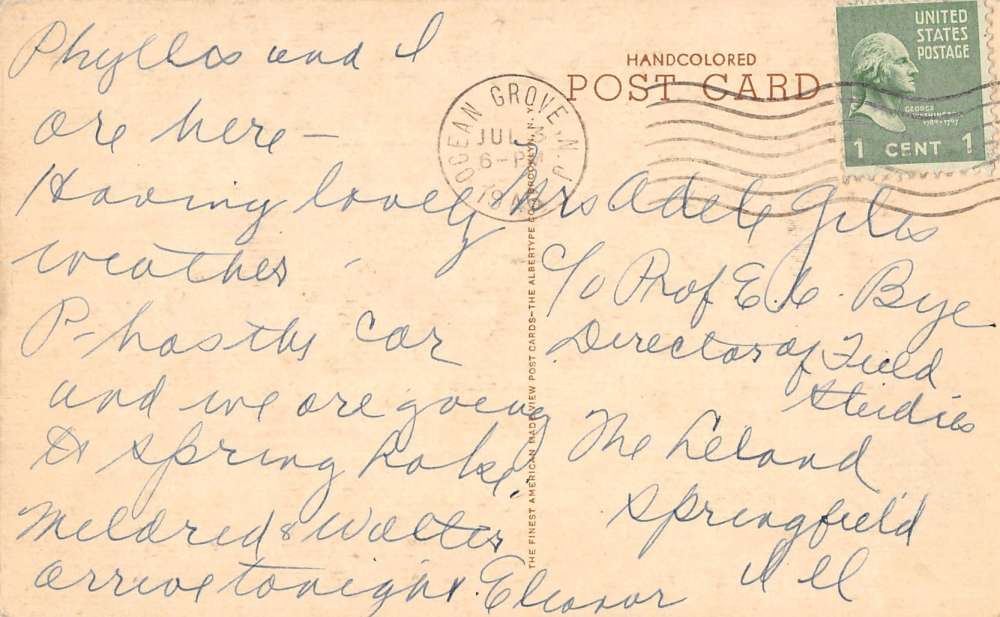 Phyllis and I
are here –
Having lovely
weather –
P– has the car
and we are going
to Spring Lake.
Mildred & Walter
arrive tonight. Eleanor
HANDCOLORED
POST CARD
OCEAN GROVE, N.J.
JUL
6–PM
19
UNITED
STATES
POSTAGE
GEORGE
WASHINGTON
1789–1797
1 CENT 1
THE FINEST AMERICAN MADE VIEW POST CARDS–THE ALBERTYPE CO., BROOKLYN, N. Y.
Mrs Adele Giles
c/o Prof E. C. Bye
Director of Field
Studies
The Leland
Springfield
Ill